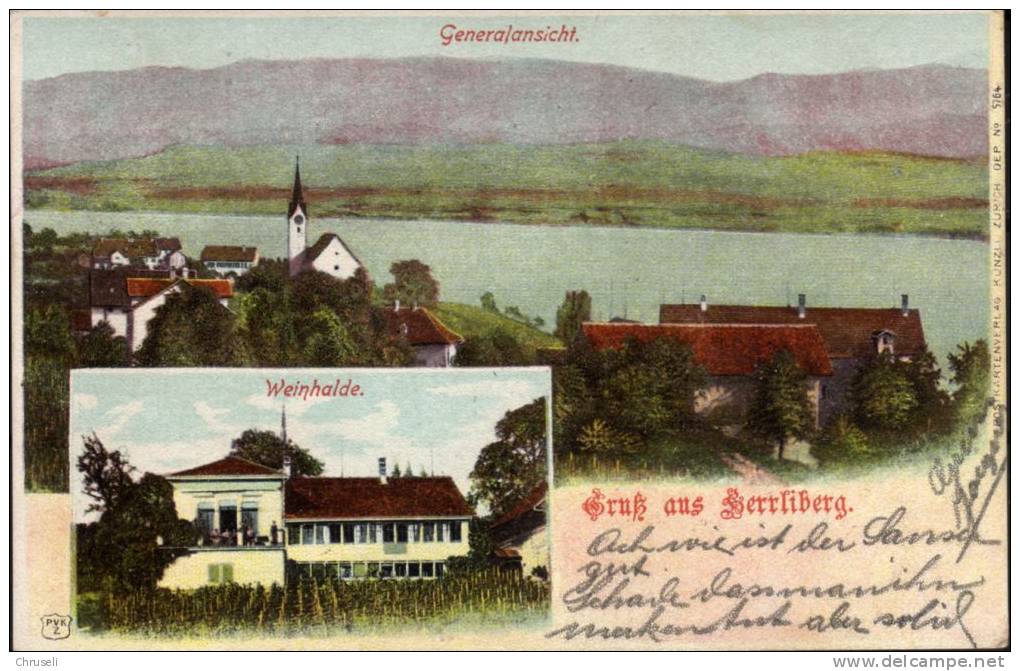 Generalansicht.
Weinhalde.
Gruß aus Herrliberg.
Ach wie ist der
gut
Schade dass man ihn
merken tut aber solid
POSTKARTENVERLAG KÜNZLI, ZÜRICH DEP. No 5764
PVK
Z
© Chruseli
http://www.delcampe.net